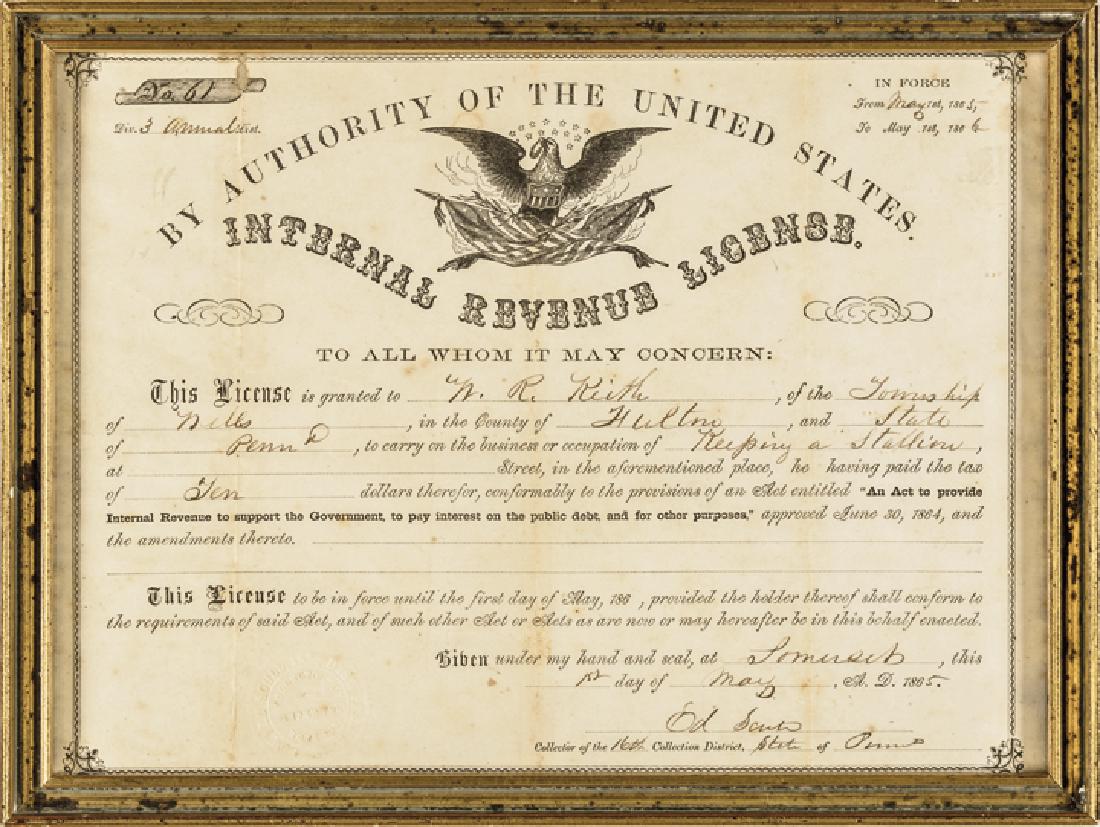 No. 61
Div. 3 Annual Dist.
IN FORCE
From May 1st, 1865,
To May 1st, 1866
BY AUTHORITY OF THE UNITED STATES.
INTERNAL REVENUE LICENSE.
TO ALL WHOM IT MAY CONCERN:
This License is granted to W. R. Keith, of the Township
of Wells, in the County of Fulton, and State
of Penna, to carry on the business or occupation of Keeping a Stallion,
at Street, in the aforementioned place, he having paid the tax
of Ten dollars therefor, conformably to the provisions of an Act entitled "An Act to provide
Internal Revenue to support the Government, to pay interest on the public debt, and for other purposes," approved June 30, 1864, and
the amendments thereto.
This License to be in force until the first day of May, 186 , provided the holder thereof shall conform to
the requirements of said Act, and of such other Act or Acts as are now or may hereafter be in this behalf enacted.
Given under my hand and seal, at Somerset, this
1st day of May, A. D. 1865.
Ed
Collector of the 16th Collection District, State of Penna